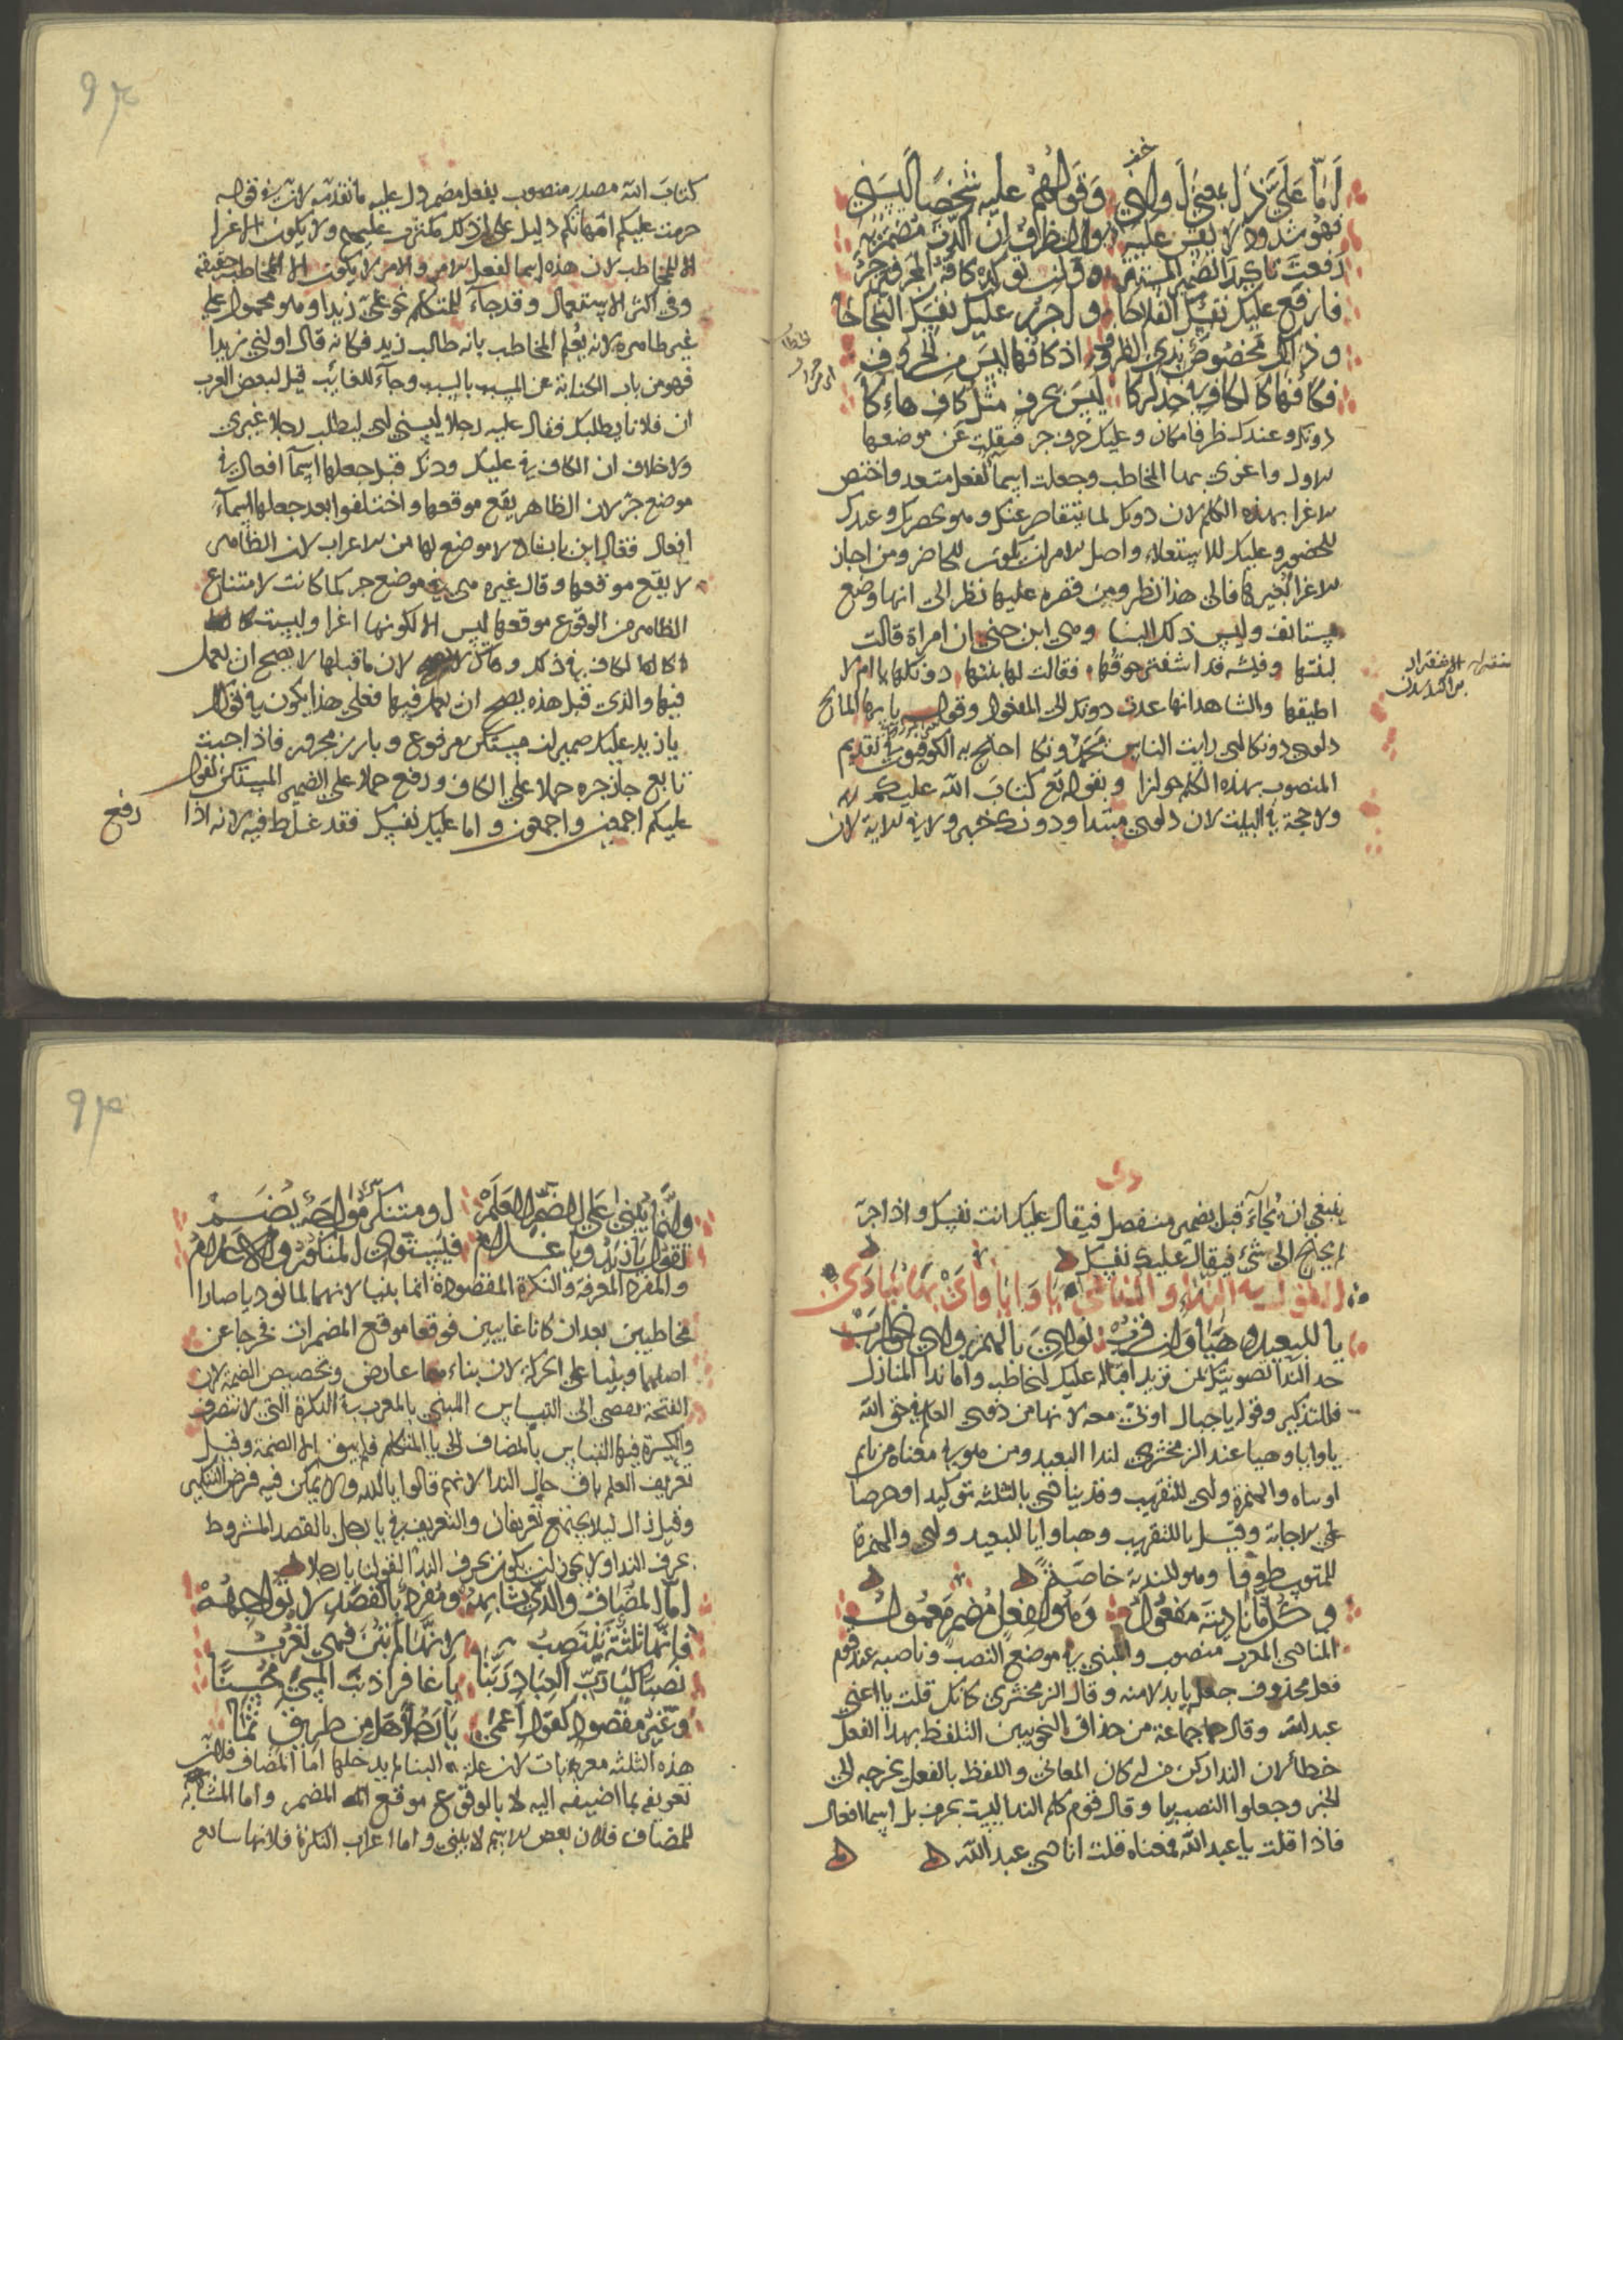 اما عليّ ذا بمعنى اولني وقولهم عليه شخصا ليسني
فهو شذوذ لا يقس عليه
رفعت تاكيدا لضمير المستتر وان توكده كافه المجرور جر
فارفع عليك نفسك الفلاحا واجرر عليك نفسك النجاحا
وذاك مخصوص بذي الظروف اذ كافها ليس من الحروف
فكافها كالكاف ياخذاركا ليس بحرف مثل كاف هاءكا
دونك وعندك ظرفا مكان وعليك حرف جر فنقلت عن موضعها
الاول واغري بها المخاطب وجعلت اسما لفعل متعد واختص
الاغرا بهذه الكلم لان دونك لما يتقاصر عنك وهو بحضرتك وعندك
للحضور وعليك للاستعلاء واصل الامر ان يكون للحاضر ومن اجاز
الاغرا بغيرها فالى هذا نظر ومن قصره عليها نظر الى انها وضع
مستانف وليس ذلك الينا وحكى ابن جني ان امراة قالت
لبنتها فقالت لها بنتها دونكها يا ام لا
اطيقها والشاهد انها عدت دونك الى المفعول وقول يا ايها المائح
دلوي دونكا اني رايت الناس يحمدونكا احتج به الكوفيون في تقديم
المنصوب بهذه الكلم جوازا وبقوله تع كتاب الله عليكم
ولا حجة في البيت لان دلوي مبتدا ودونك خبره ولا في الاية لان
كتاب الله مصدر منصوب بفعل مضمر دل عليه ما تقدمه لان في قوله
حرمت عليكم امهاتكم دليل على ان ذلك مكتوب عليهم ولا يكون الاغرا
الا للمخاطب لان هذه اسما لفعل الامر والامر لا يكون الا للمخاطب حقيقة
وفي اكثر الاستعمال وقد جاء للمتكلم نحو عليّ زيدا وهو محمول على
غير ظاهره لانه يعلم المخاطب بانه طالب زيد فكانه قال اولني زيدا
فهو من باب الكناية عن المسبب بالسبب وجاء للغائب قيل لبعض العرب
ان فلانا يطلبك فقال عليه رجلا ليسني اي ليطلب رجلا غيري
ولا خلاف ان الكاف في عليك ودونك قبل جعلها اسما افعال في
موضع جر لان الظاهر يقع موقعها واختلفوا بعد جعلها اسماء
افعال فقال ابن بابشاذ لا موضع لها من الاعراب لان الظاهر
لا يقع موقعها وقال غيره هي في موضع جر كما كانت لامتناع
الظاهر من الوقوع موقعها ليس الا لكونها اغرا وليست
لان ما قبلها لا يصح ان يعمل
فيها والذي قبل هذه يصح ان يعمل فيها فعلى هذا يكون في قولك
يا زيد عليك ضميران مستكن مرفوع وبارز مجرور فاذا جيت
تابع جاز جره حملا على الكاف ورفع حملا على الضمير المستكن تقول
عليكم اجمعين واجمعون واما عليك نفسك فقد غلط فيه لانه اذا
رفع
ينبغي ان يجاء قبل بضمير منفصل فيقال عليك انت نفسك واذا جر
لم يحتج الى شيء فيقال عليك نفسك
القول في الندا والمنادى يا وايا واي بها ينادى
يا للبعيد وهيا وان قرب نودي بالهمز واي
حد الندا تصويتك لمن تريد اقباله عليك لتخاطبه واما ندا المنازل
فللتذكير وقوله يا جبال اوبي معه لانها من ذوي العلم في حق الله
يا وايا وهيا عند الزمخشري لندا البعيد ومن هو في معناه من نايم
او ساه والهمزة واي للقريب وقد ينادى بالثلثة توكيدا وحرصا
على الاجابة وقيل يا للقريب وهيا وايا للبعيد واي والهمزة
للمتوسط ووا وهو للندبة خاصة
وكل ما ناديته مفعول وهو لفعل مضمر معمول
المنادى المعرب منصوب والمبني في موضع النصب وناصبه عند قوم
فعل محذوف جعل يا بدلا منه وقال الزمخشري كانك قلت يا اعني
عبد الله وقال جماعة من حذاق النحويين التلفظ بهذا الفعل
خطا لان الندا ركن من اركان المعاني واللفظ بالفعل يخرجه الى
الخبر وجعلوا النصب بها وقال قوم كلم الندا ليست بحروف بل اسما افعال
فاذا قلت يا عبد الله فمعناه قلت انادي عبد الله
وانما يبنى على الضم العلم او متنكر مواجه يضم
تقول يا زيد ويا غلام فيستوي المنكور والاعلام
والمفرد المعرفة والنكرة المقصودة انما بنيا لانهما لما نوديا صارا
مخاطبين بعد ان كانا غايبين فوقعا موقع المضمرات فخرجا عن
اصلهما وبنيا على الحركة لان بناءهما عارض وتخصيص الضمة لان
الفتحة تفضي الى التباس المبني بالمعرب في النكرة التي لا تنصرف
والكسرة فيها التباس بالمضاف الى يا المتكلم فلم يبق الا الضمة وقيل
تعريف العلم باق حال الندا لانهم قالوا يا الله ولا يمكن فيه فرض التنكير
وقيل زال ليلا يجتمع تعريفان والتعريف في يا رجل بالقصد المشروط
بحرف الندا ولا يجوز ان يكون بحرف الندا لقولك يا رجلا
اما المضاف والذي شابهه ومفرد بالقصد لا تواجهه
فانما ثلثة تنتصب لانها لم تبن فهي تعرب
نصبا كيا رب العباد ربنا يا غافرا ذنب المسيء محسنا
وغير مقصود كقول اعمى يا رجلا هل من طريق ثما
هذه الثلثة معربات لان علة البنا لم يدخلها اما المضاف فلان
تعريفه بما اضيف اليه لا بالوقوع موقع المضمر واما المشابه
للمضاف فلان بعض الاسم لا يبنى واما اعراب النكرة فلانها شايع